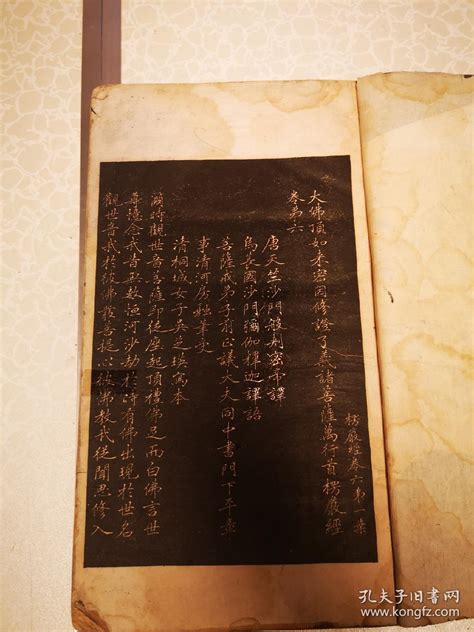 楞嚴經卷六第一葉
大佛頂如來密因修證了義諸菩薩萬行首楞嚴經
卷第六
唐天竺沙門般剌密帝譯
烏萇國沙門彌伽釋迦譯語
菩薩戒弟子前正議大夫同中書門下平章
事清河房融筆受
清桐城女子吳芝瑛寫本
爾時觀世音菩薩即從座起頂禮佛足而白佛言世
尊憶念我昔無數恒河沙劫於時有佛出現於世名
觀世音我於彼佛發菩提心彼佛教我從聞思修入
孔夫子旧书网
kongfz.com